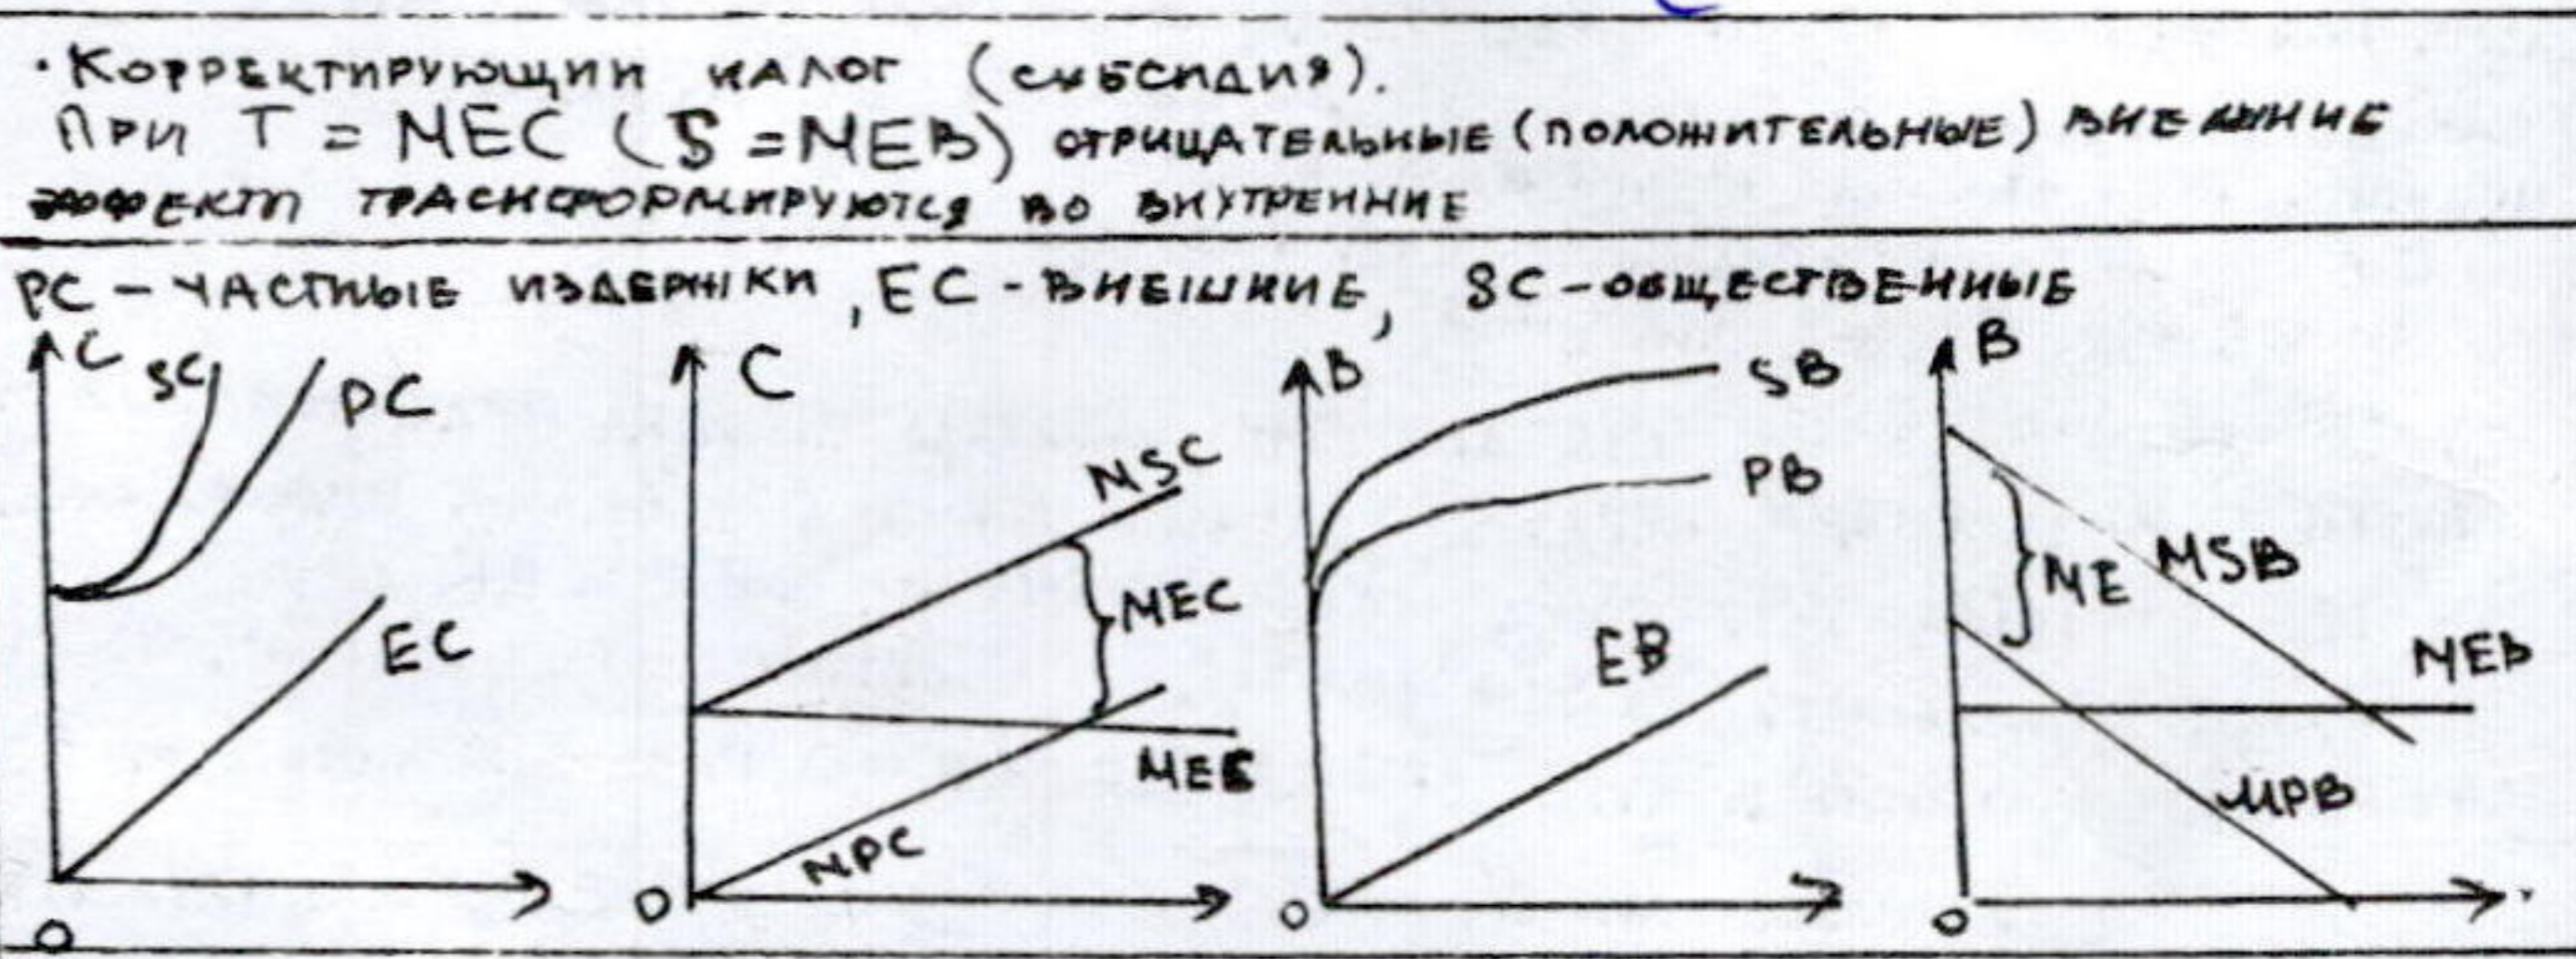 · Корректирующий налог (субсидия).
При T = MEC (S = MEB) отрицательные (положительные) внешние
эффекты трансформируются во внутренние
PC – частные издержки, EC - внешние, SC – общественные
C SC PC EC 0
C MSC MEC MEC MPC 0
B SB PB EB 0
B ME MSB MEB MPB 0